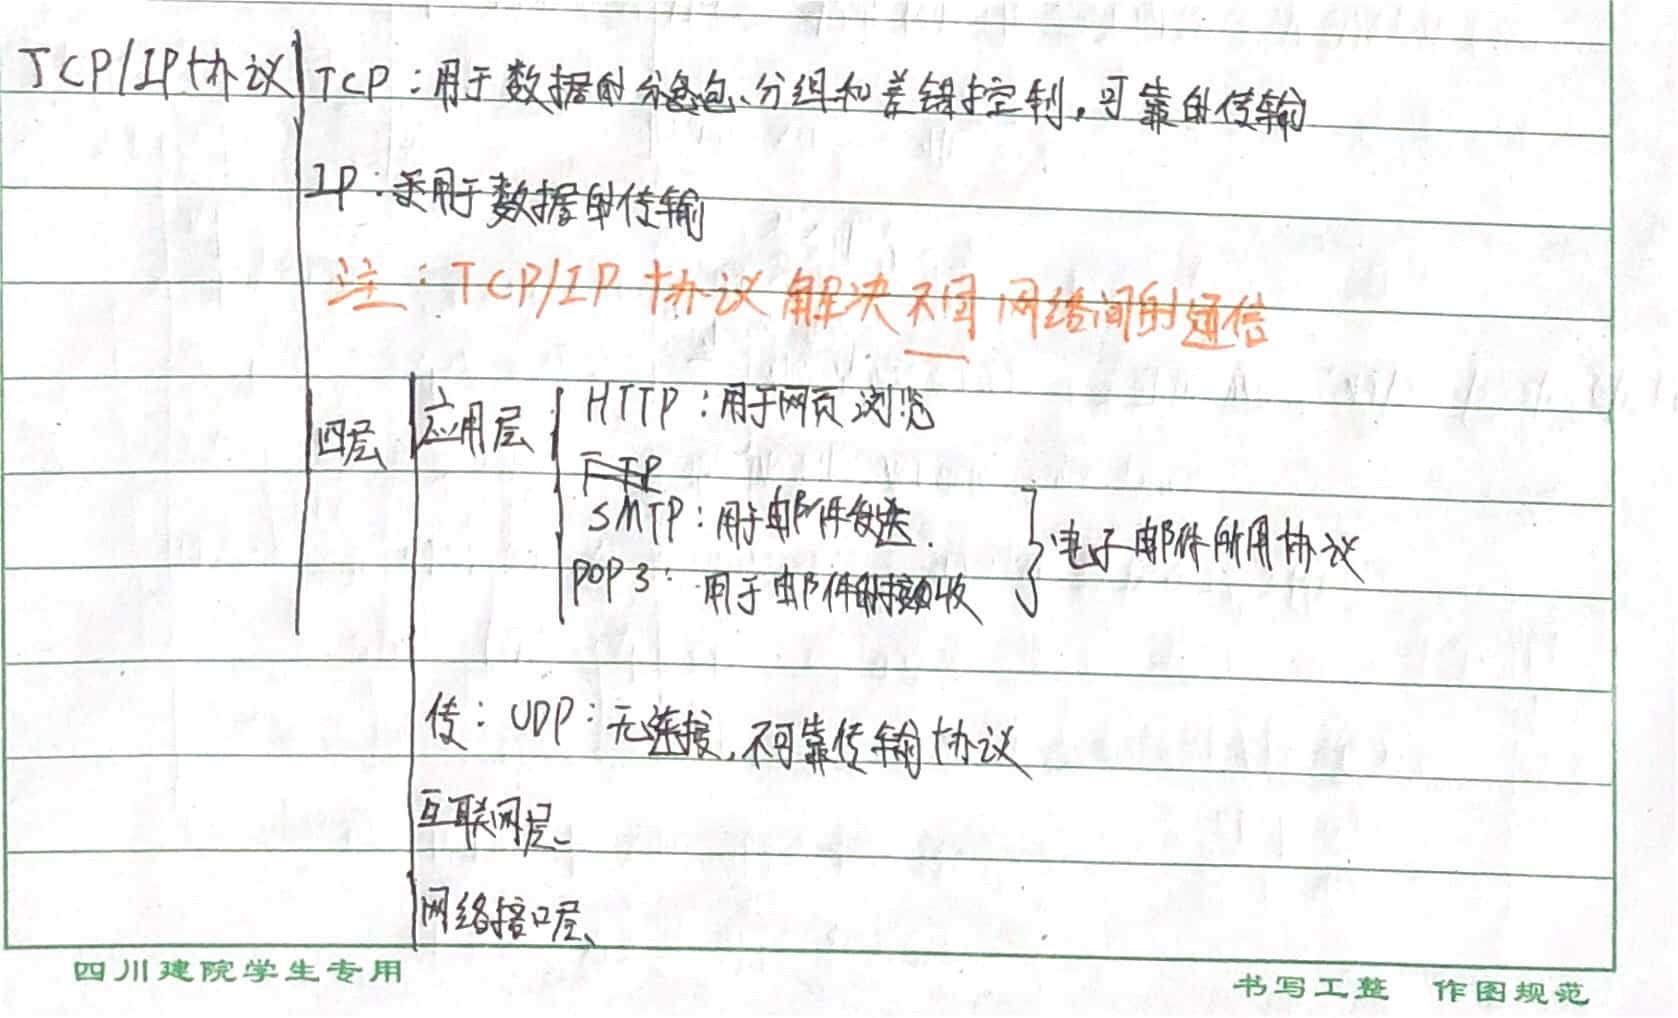 TCP/IP协议
TCP：用于数据的分包、分组和差错控制，可靠的传输
IP：用于数据的传输
注：TCP/IP协议解决不同网络间的通信
四层
应用层
HTTP：用于网页浏览
FTP
SMTP：用于邮件发送.
POP3：用于邮件的接收
电子邮件所用协议
传：UDP：无连接，不可靠传输协议
互联网层
网络接口层
四川建院学生专用
书写工整 作图规范